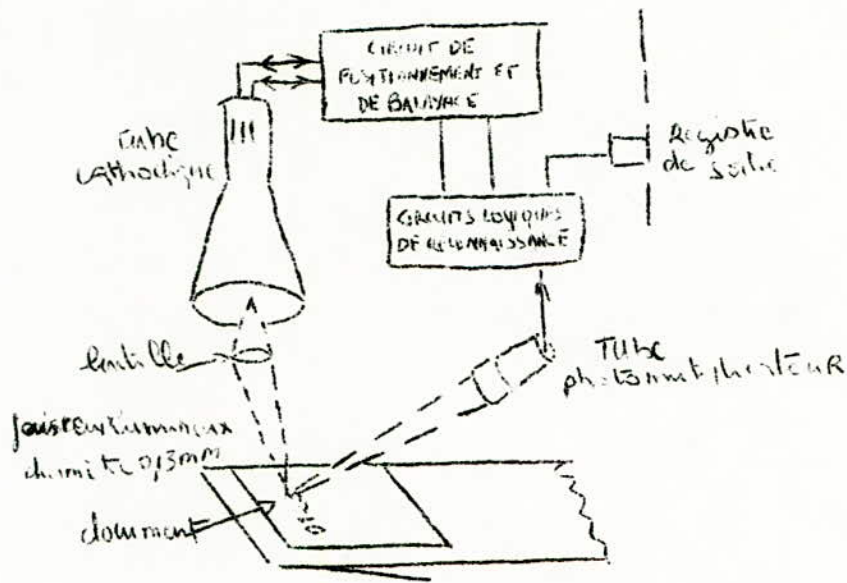 CIRCUIT DE
POSITIONNEMENT ET
DE BALAYAGE
Tube
cathodique
Registre
de sortie
CIRCUITS LOGIQUES
DE RECONNAISSANCE
lentille
TUBE
photomultiplicateuR
faisceau lumineux
0,3mm
document